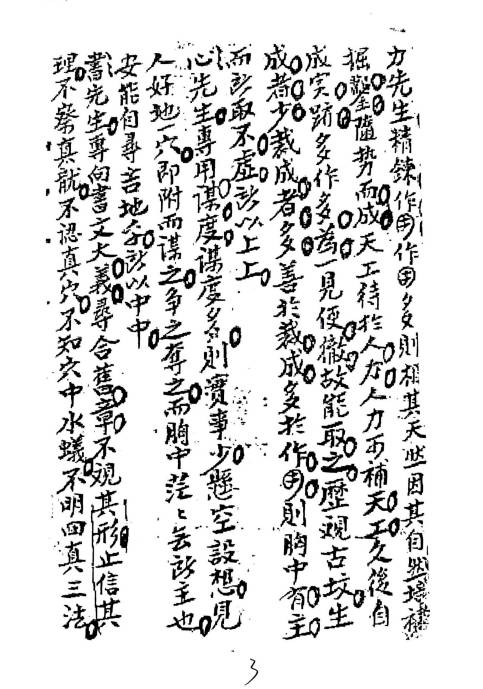 力先生精鍊作用作用多則相其天然因其自然培補
掘鑿隨势而成天工待於人力人力可補天工久後自
成实跡多作多為一見便徹故能取之歷观古坟生
成者少裁成者多善於裁成多於作用則胸中有主
而所取不虚所以上上
心先生專用谋度谋度多則實事少懸空設想見
人好地一穴即附而谋之争之奪之而胸中茫々无所主也
安能自尋吉地乎所以中中
書先生專向書文大義尋合舊章不观其形止信其
理不察真龍不認真穴不知穴中水蟻不明回真三法
3